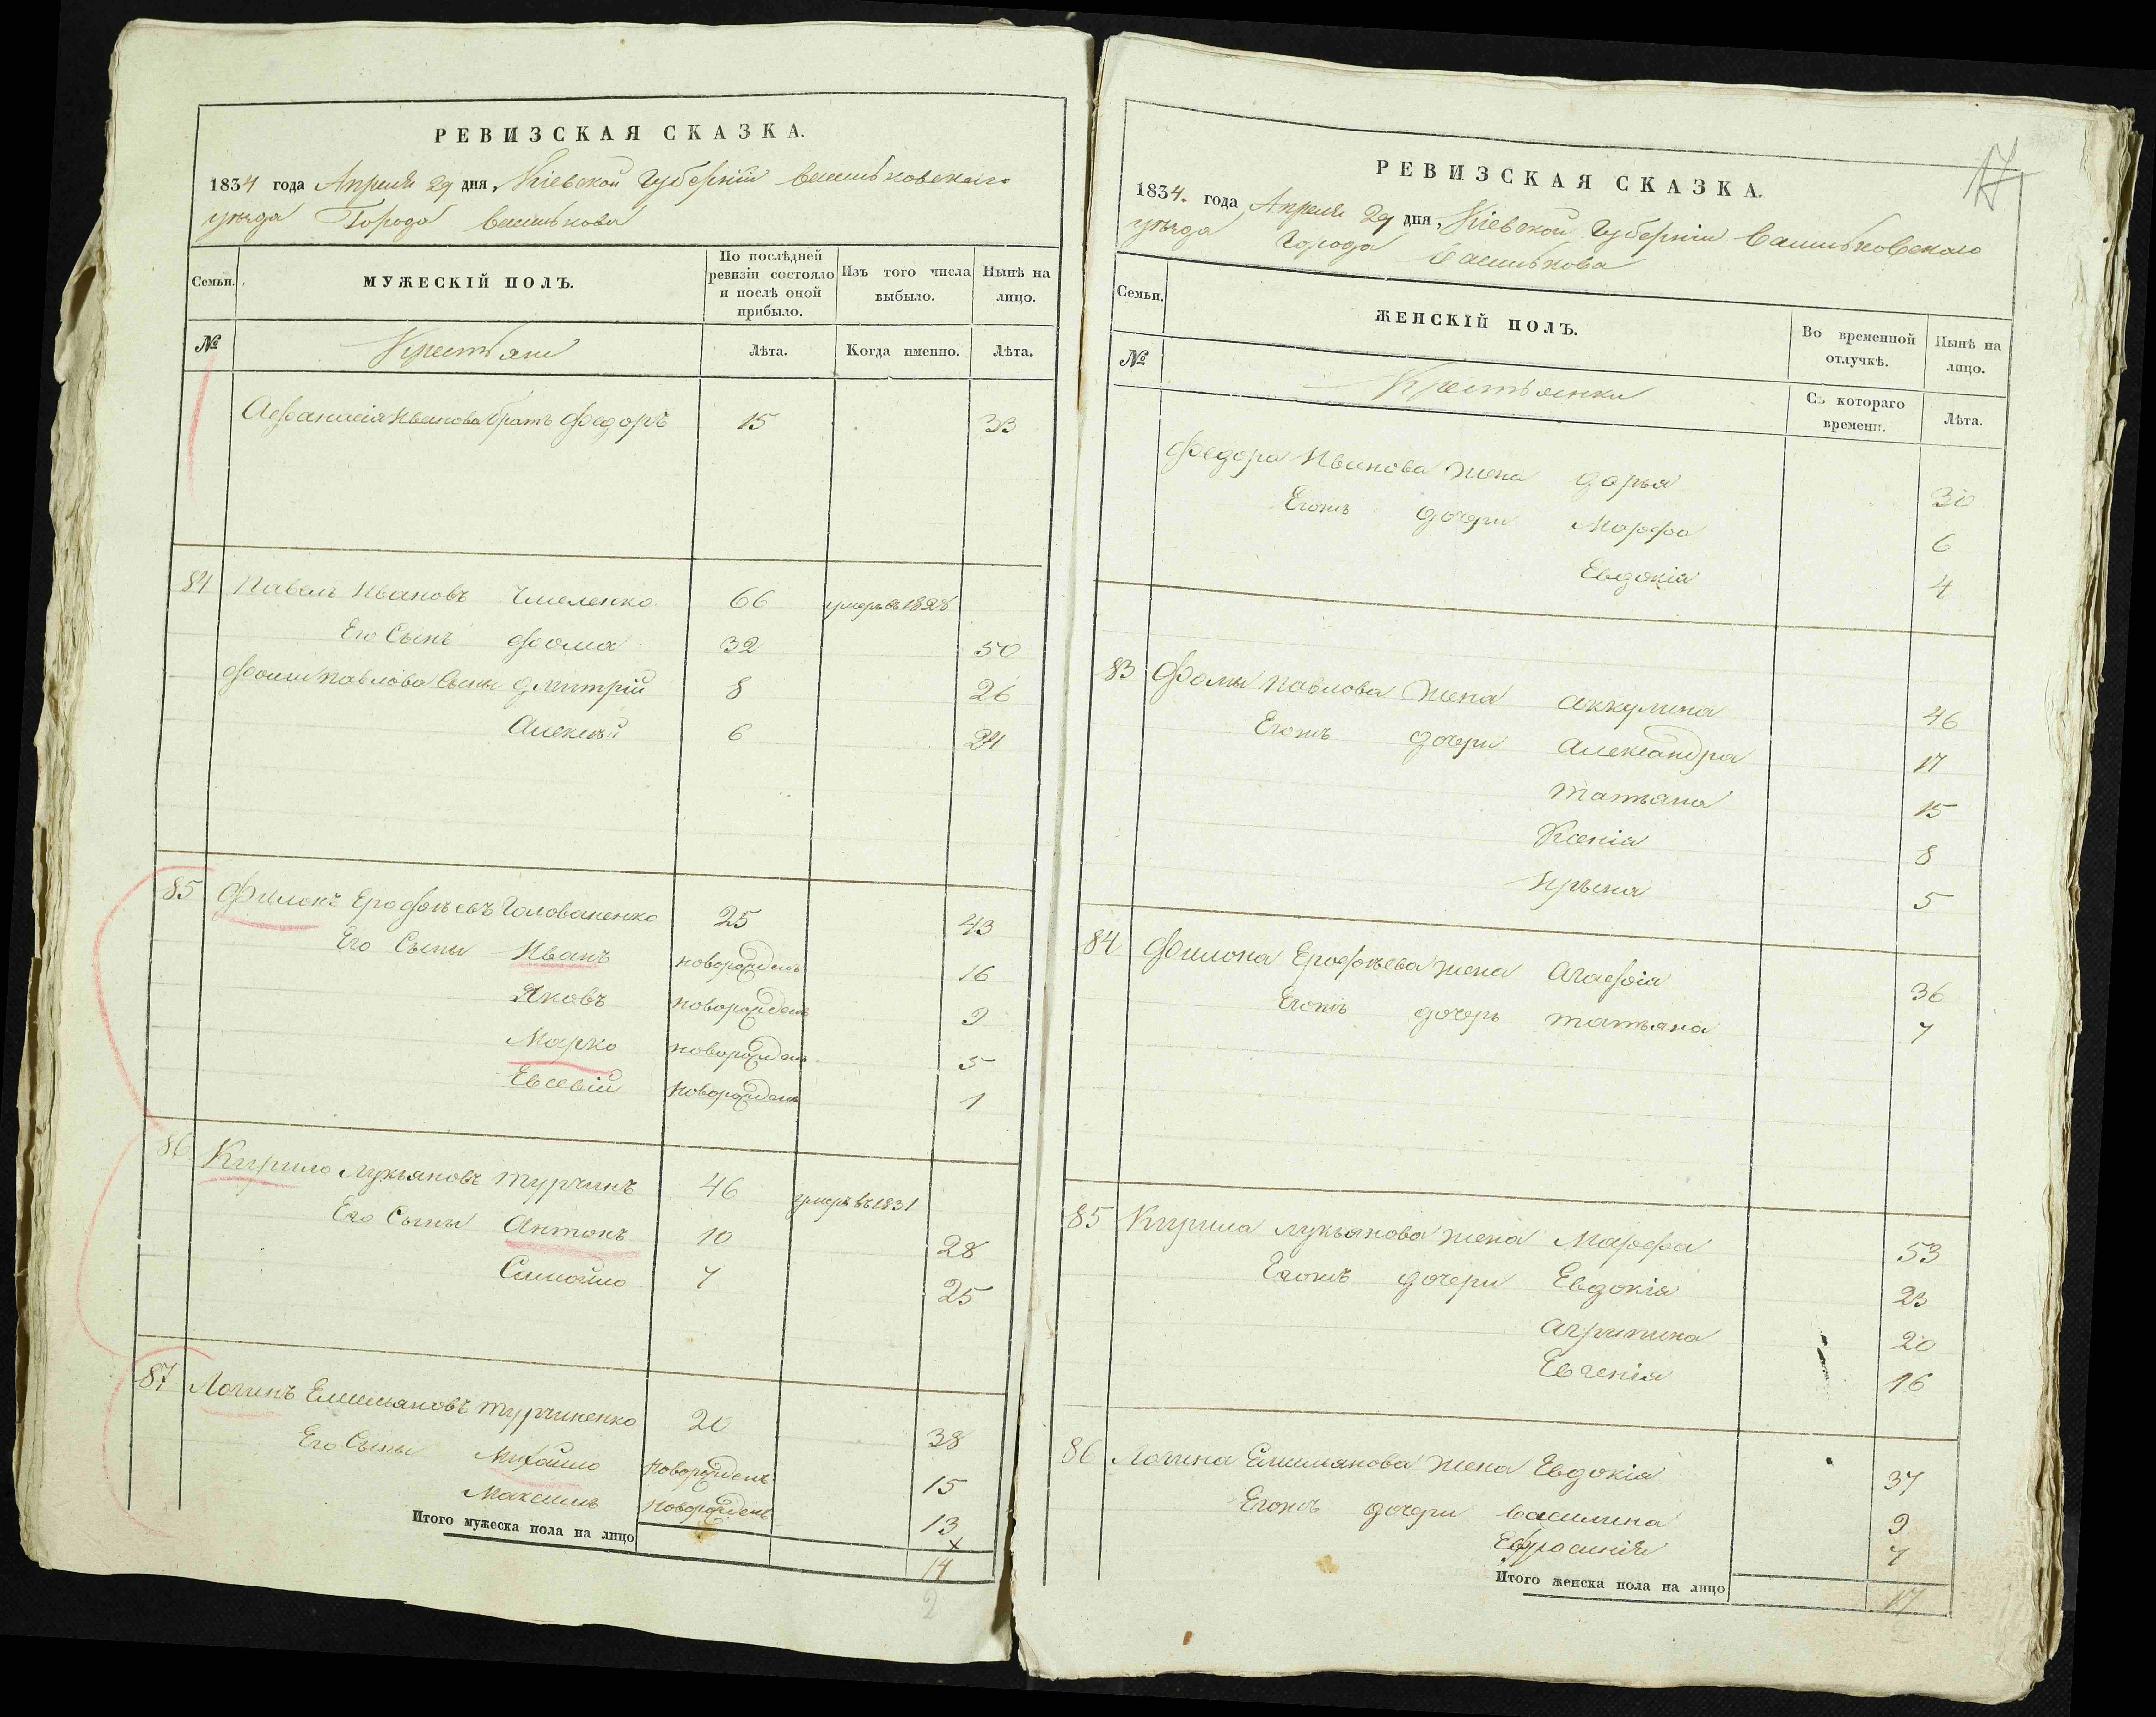 РЕВИЗСКАЯ СКАЗКА.
1834 года Апреля 29 дня, Кіевской Губерніи Васильковскаго
уѣзда Города Василькова
Семьи. МУЖЕСКІЙ ПОЛЪ. По послѣдней ревизіи состояло и послѣ оной прибыло. Изъ того числа выбыло. Нынѣ на лицо.
№ Крестьяне Лѣта. Когда именно. Лѣта.
Афанасія Иванова братъ Федоръ 15 33
84 Павелъ Ивановъ Чмеленко 66 умеръ въ 1828
Его Сынъ Фома 32 50
Фомы Павлова Сыны Дмитрій 8 26
Алексѣй 6 24
85 Филонъ Ерофѣевъ Голованенко 25 43
Его Сыны Иванъ новорожденъ 16
Яковъ новорожденъ 9
Марко новорожденъ 5
Евсевій новорожденъ 1
86 Кирило Лукьяновъ Турчинъ 46 умеръ въ 1831
Его Сыны Антонъ 10 28
Самойло 7 25
87 Логинъ Емельяновъ Турчиненко 20 38
Его Сыны Михайло новорожденъ 15
Максимъ новорожденъ 13
х
Итого мужеска пола на лицо 14
2
17
РЕВИЗСКАЯ СКАЗКА.
1834. года Апреля 29 дня, Кіевской Губерніи Васильковскаго
уѣзда Города Василькова
Семьи. ЖЕНСКІЙ ПОЛЪ. Во временной отлучкѣ. Нынѣ на лицо.
№ Крестьянки Съ котораго времени. Лѣта.
Федора Иванова жена Дарья 30
Егожъ дочери Марфа 6
Евдокія 4
83 Фомы Павлова жена Аккулина 46
Егожъ дочери Александра 17
Татьяна 15
Ксенія 8
Ирына 5
84 Филона Ерофѣева жена Агафія 36
Егожъ дочерь Татьяна 7
85 Кирила Лукьянова жена Марфа 53
Егожъ дочери Евдокія 23
Агрипина 20
Евгенія 16
86 Логина Емельянова жена Евдокія 37
Егожъ дочери Василина 9
Ефросинія 7
Итого женска пола на лицо 17